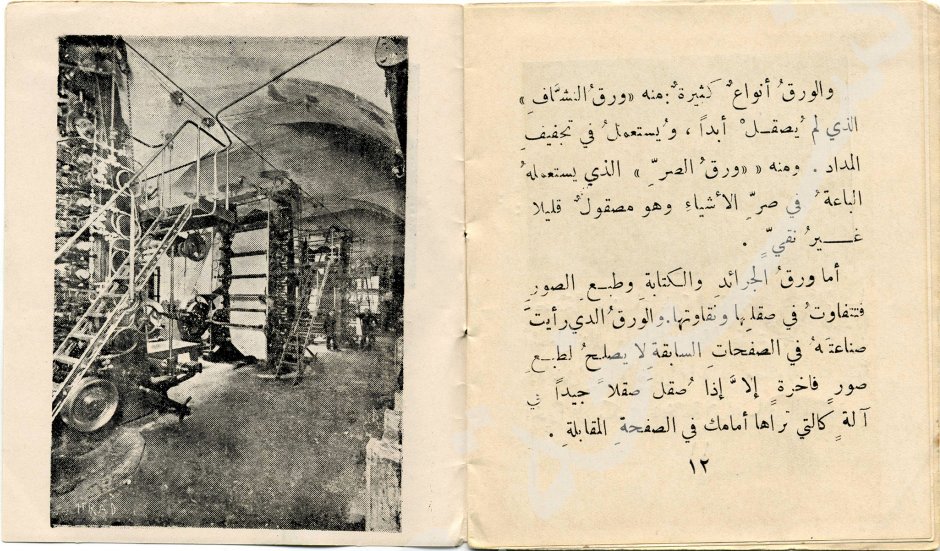 والورقُ أنواعٌ كثيرةٌ: منه «ورقُ النشَّافِ»
الذي لم يُصقـلْ أبداً ، ويُستعملُ في تجفيفِ
المداد . ومنه « «ورقُ الصرِّ » الذي يستعملهُ
الباعةُ في صرِّ الأشياءِ وهو مصقولٌ قليلا
غـــيرُ نقيٍّ .
أما ورقُ الجرائدِ والكتابةِ وطبـعِ الصورِ
فتتفاوتُ في صقلِها ونقاوتها. والورقُ الذي رأيتَ
صناعتَهُ في الصفحاتِ السابقةِ لا يصلحُ لطبـعِ
صورٍ فاخرةٍ إلاَّ إذا صُقلَ صقلاً جيداً في
آلةٍ كالتي تراها أمامك في الصفحةِ المقابلةِ .
١٢